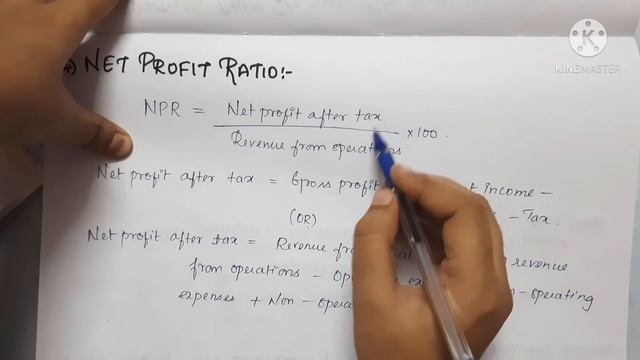 KINEMASTER
A) NET PROFIT RATIO:-
NPR = Net profit after tax
Revenue from operations × 100.
Net profit after tax = Gross profit income –
– Tax.
(OR)
Net profit after tax = Revenue from revenue
from operations – operating
expenses + Non – operating